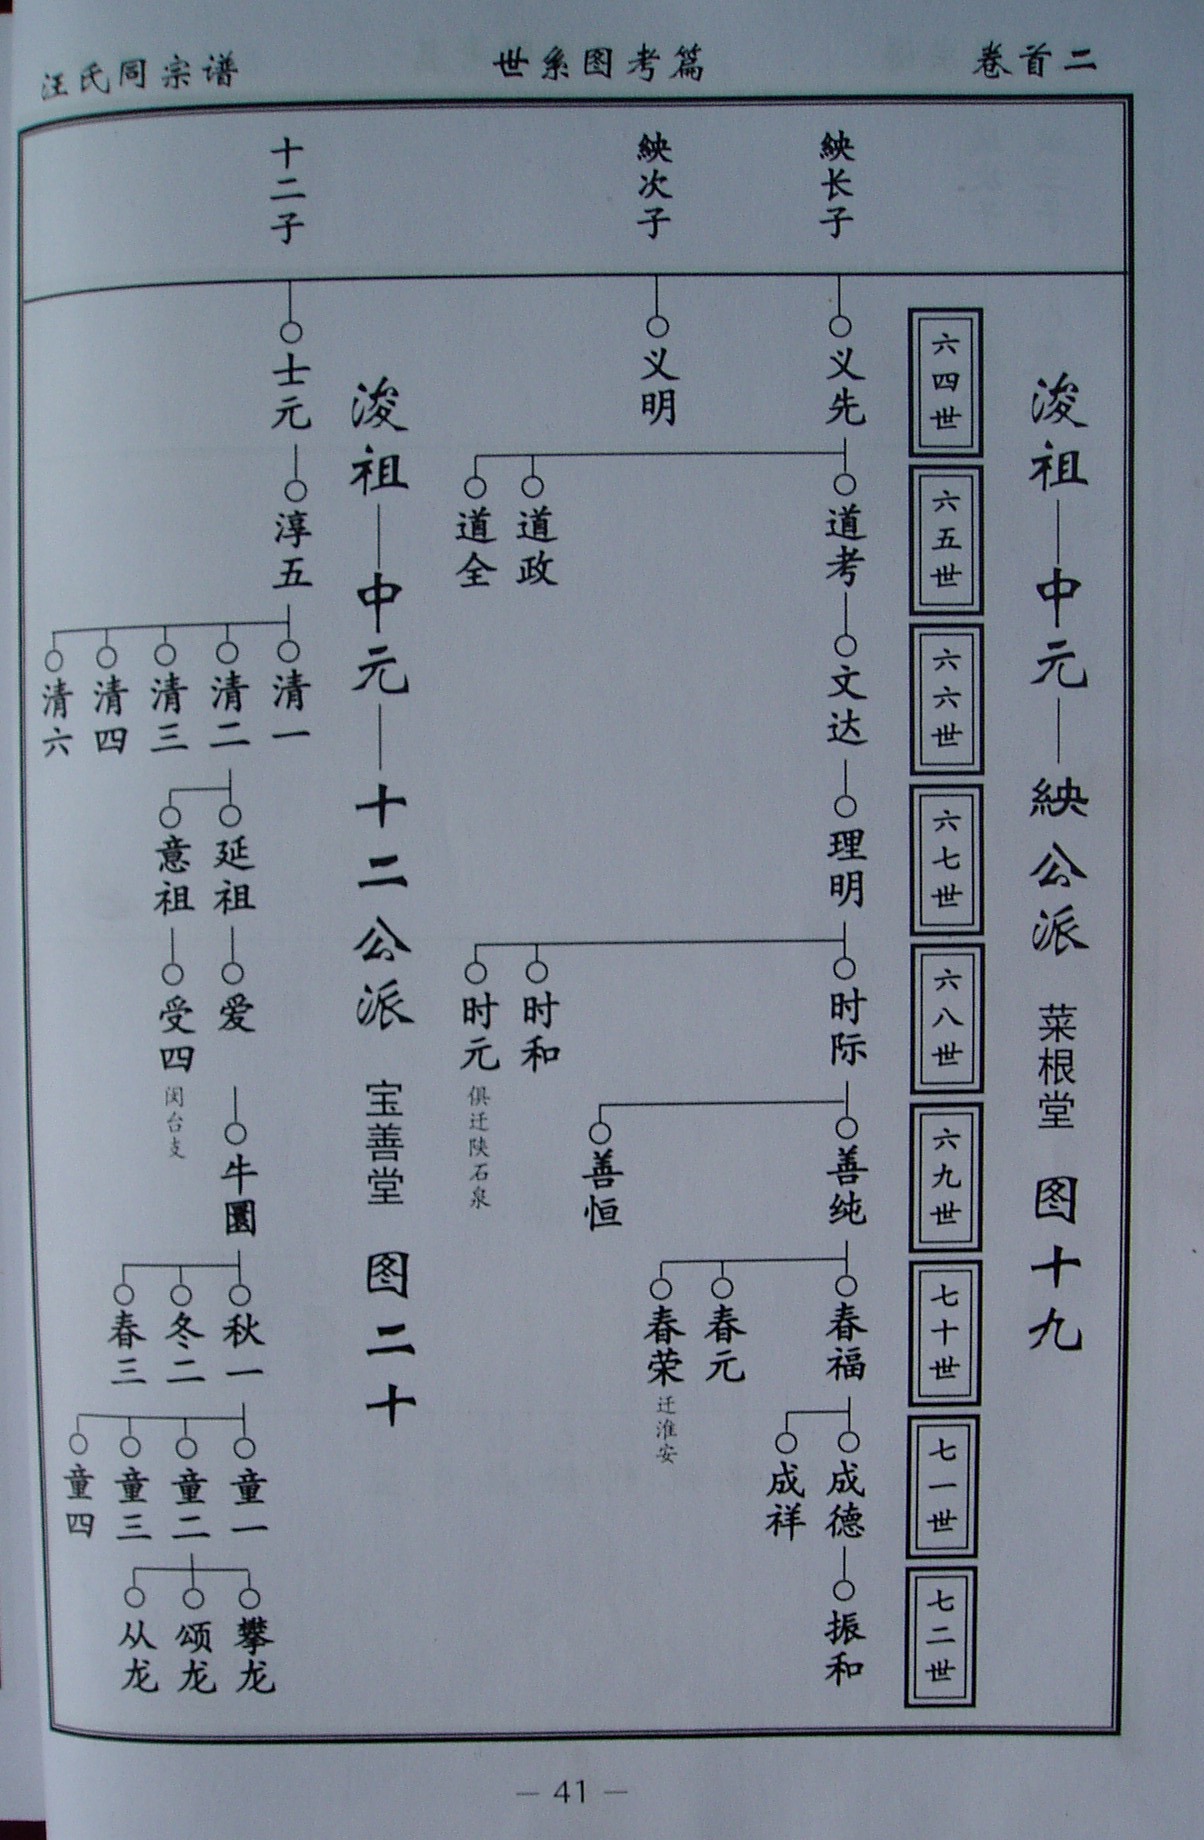 卷首二
世系图考篇
汪氏同宗谱
浚祖—中元—紻公派 菜根堂 图十九
六四世
六五世
六六世
六七世
六八世
六九世
七十世
七一世
七二世
紻长子
义先
道考
文达
理明
时际
善纯
春福
成德
振和
成祥
春元
春荣
迁淮安
善恒
紻次子
义明
道政
道全
时和
时元
俱迁陕石泉
浚祖—中元—十二公派 宝善堂 图二十
十二子
士元
淳五
清一
清二
清三
清四
清六
延祖
意祖
爱
受四
闵台支
牛圜
秋一
冬二
春三
童一
童二
童三
童四
攀龙
颂龙
从龙
— 41 —